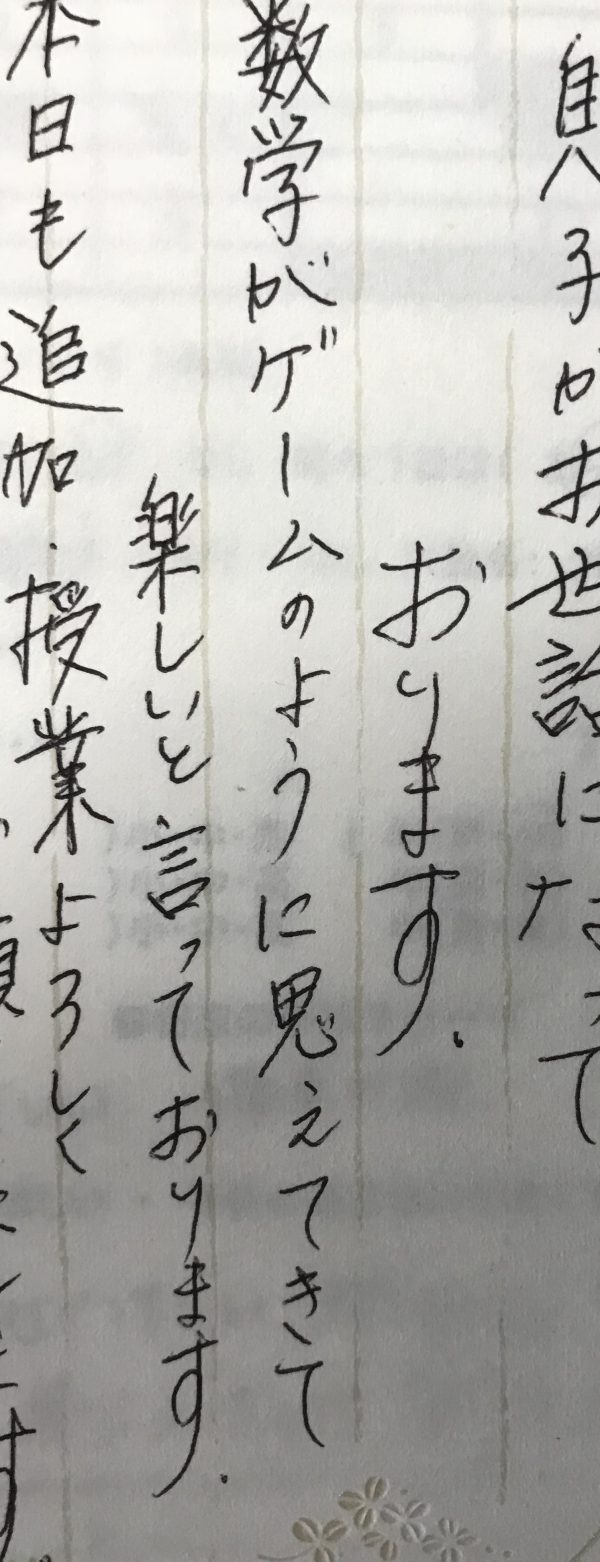 息子がお世話になって
おります。
数学がゲームのように思えてきて
楽しいと言っております。
本日も追加授業よろしく